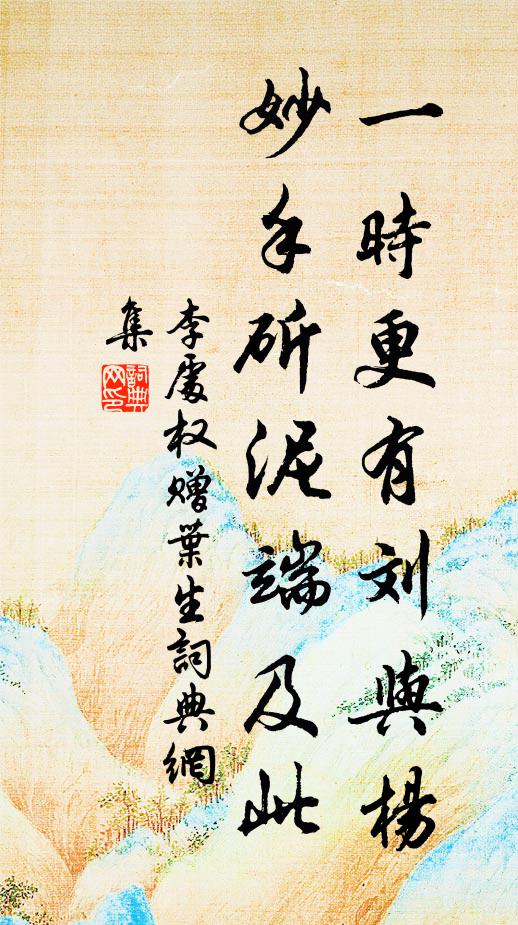 一時更有刘與楊
妙手斫泥端及此
李處权赠葉生詞典網
集
詞典网印